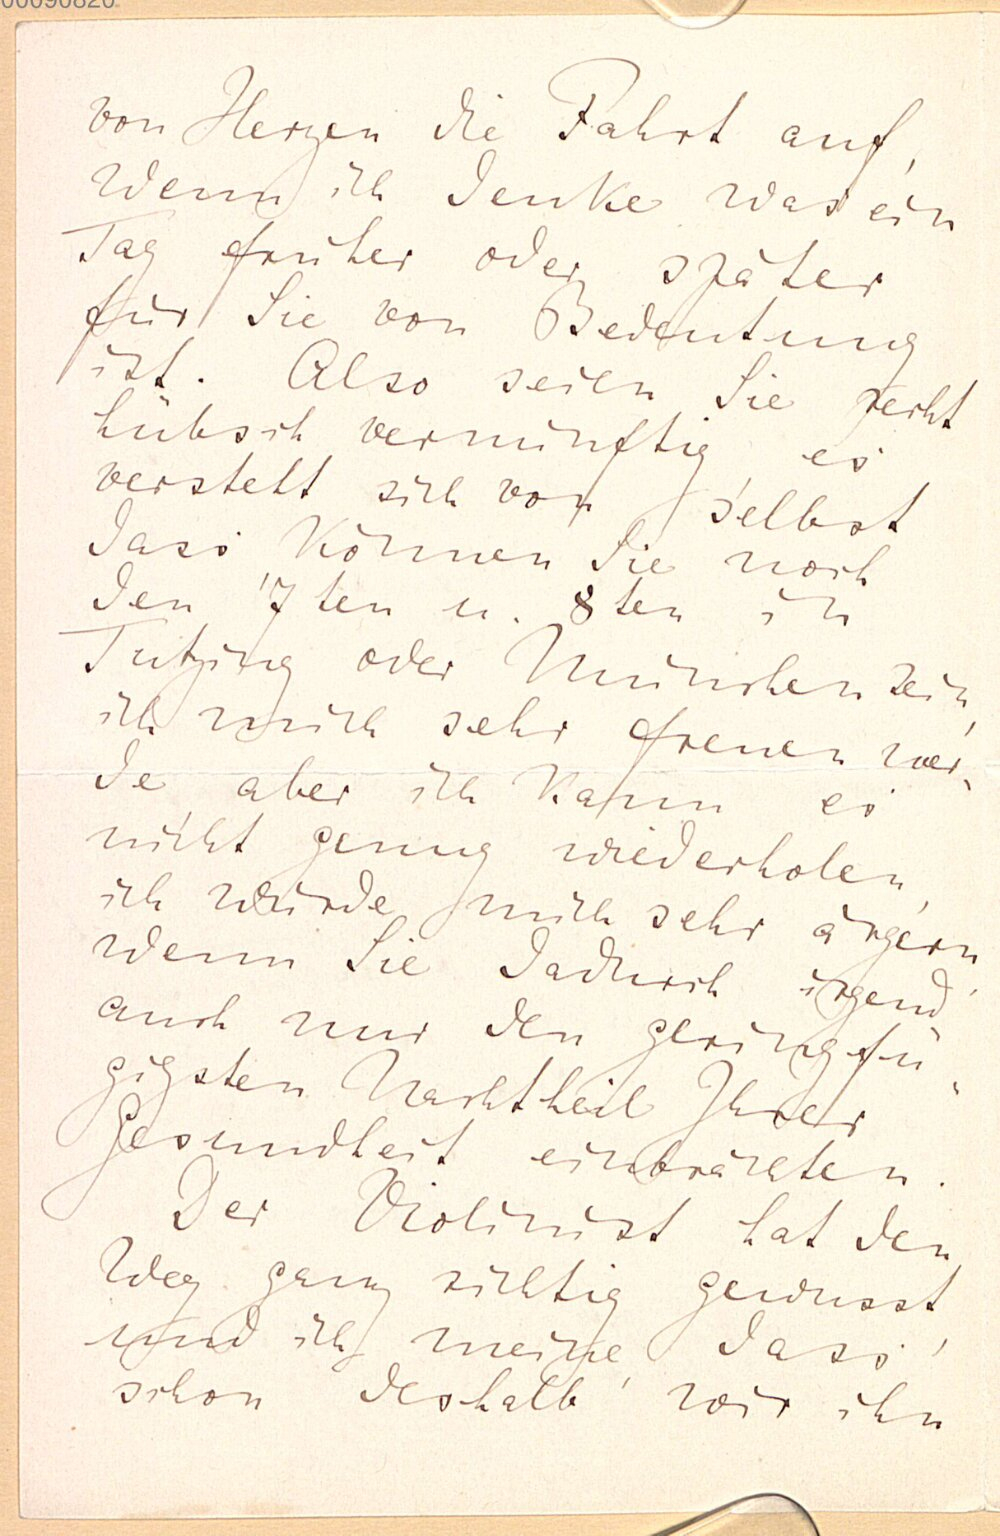 00090820
von Herzen die Fahrt auf,
wenn ich denke was ein
Tag früher oder später
für Sie von Bedeutung
ist. Also seien Sie recht
hübsch vernünftig, es
versteht sich von selbst
dass können Sie noch
den 7ten u. 8ten in
Tutzing oder München sein,
ich mich sehr freuen wer-
de, aber ich kann es
nicht genug wiederholen,
ich würde mich sehr ärgern,
wenn Sie dadurch irgend
auch nur den geringfü-
gigsten Nachtheil Ihrer
Gesundheit einbrächten.
Der Violinist hat den
Weg ganz richtig gewusst
und ich meine, dass,
schon deshalb wir ihn